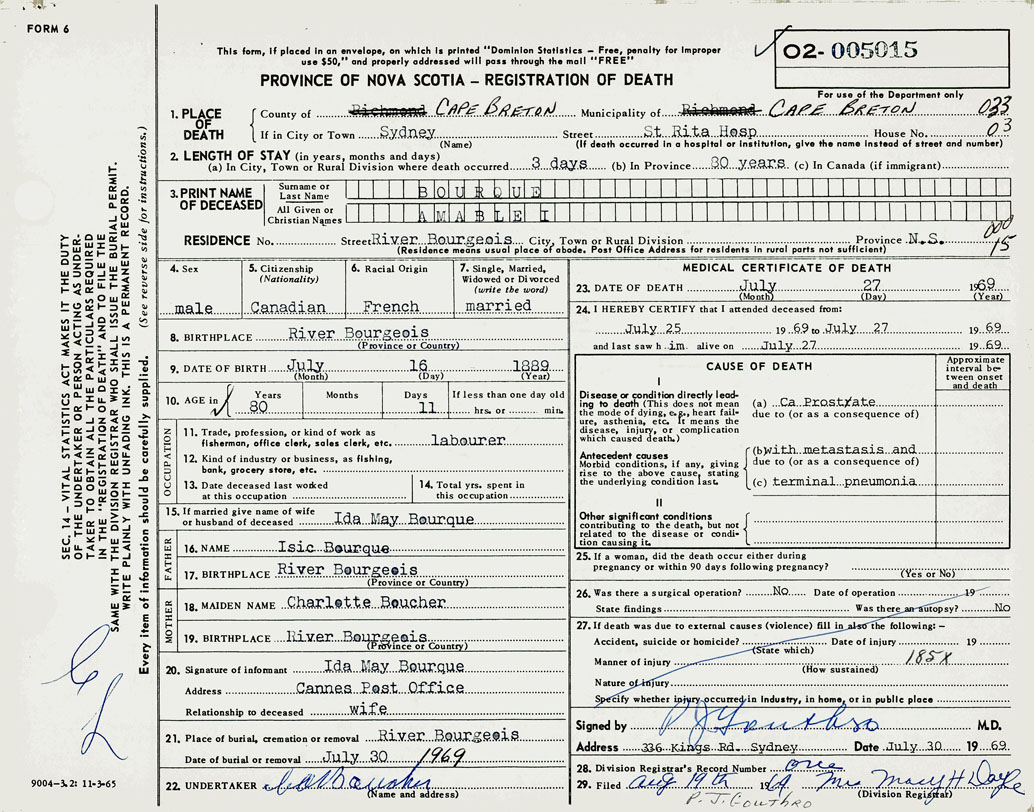 FORM 6
This form, if placed in an envelope, on which is printed "Dominion Statistics – Free, penalty for improper
use $50," and properly addressed will pass through the mail "FREE"
PROVINCE OF NOVA SCOTIA – REGISTRATION OF DEATH
02- 005015
For use of the Department only
1. PLACE OF DEATH
County of Richmond CAPE BRETON Municipality of Richmond CAPE BRETON 033
If in City or Town Sydney Street St Rita Hosp House No. 03
(Name) (If death occurred in a hospital or institution, give the name instead of street and number)
2. LENGTH OF STAY (in years, months and days)
(a) In City, Town or Rural Division where death occurred 3 days (b) In Province 80 years (c) In Canada (if immigrant)
3. PRINT NAME OF DECEASED
Surname or Last Name BOURQUE
All Given or Christian Names AMABLE I
000
RESIDENCE No. Street River Bourgeois City, Town or Rural Division Province N.S. 15
(Residence means usual place of abode. Post Office Address for residents in rural parts not sufficient)
4. Sex
male
5. Citizenship
(Nationality)
Canadian
6. Racial Origin
French
7. Single, Married,
Widowed or Divorced
(write the word)
married
8. BIRTHPLACE River Bourgeois
(Province or Country)
9. DATE OF BIRTH July 16 1889
(Month) (Day) (Year)
10. AGE in Years Months Days If less than one day old
80 11 hrs. or min.
OCCUPATION
11. Trade, profession, or kind of work as
fisherman, office clerk, sales clerk, etc. labourer
12. Kind of industry or business, as fishing,
bank, grocery store, etc.
13. Date deceased last worked
at this occupation
14. Total yrs. spent in
this occupation
15. If married give name of wife
or husband of deceased Ida May Bourque
FATHER
16. NAME Isic Bourque
17. BIRTHPLACE River Bourgeois
(Province or Country)
MOTHER
18. MAIDEN NAME Charlotte Boucher
19. BIRTHPLACE River Bourgeois
(Province or Country)
20. Signature of informant Ida May Bourque
Address Cannes Post Office
Relationship to deceased wife
21. Place of burial, cremation or removal River Bourgeois
Date of burial or removal July 30 1969
22. UNDERTAKER
(Name and address)
MEDICAL CERTIFICATE OF DEATH
23. DATE OF DEATH July 27 1969
(Month) (Day) (Year)
24. I HEREBY CERTIFY that I attended deceased from:
July 25 19 69 to July 27 19 69
and last saw h im alive on July 27 19 69
CAUSE OF DEATH
Approximate
interval be-
tween onset
and death
I
Disease or condition directly lead-
ing to death (This does not mean
the mode of dying, e.g., heart fail-
ure, asthenia, etc. It means the
disease, injury, or complication
which caused death.)
(a) Ca Prostrate
due to (or as a consequence of)
Antecedent causes
Morbid conditions, if any, giving
rise to the above cause, stating
the underlying condition last.
(b) with metastasis and
due to (or as a consequence of)
(c) terminal pneumonia
II
Other significant conditions
contributing to the death, but not
related to the disease or condi-
tion causing it.
25. If a woman, did the death occur either during
pregnancy or within 90 days following pregnancy?
(Yes or No)
26. Was there a surgical operation? No Date of operation 19
State findings Was there an autopsy? No
27. If death was due to external causes (violence) fill in also the following: –
Accident, suicide or homicide? Date of injury 19
(State which)
Manner of injury 185X
(How sustained)
Nature of injury
Specify whether injury occurred in Industry, in home, or in public place
Signed by P J Gouthro M.D.
Address 336 Kings Rd. Sydney Date July 30 19 69.
28. Division Registrar's Record Number one
29. Filed Aug 19th 1969 Mrs Mary H Doyle
(Division Registrar)
P. J. Gouthro
SEC. 14 – VITAL STATISTICS ACT MAKES IT THE DUTY
OF THE UNDERTAKER OR PERSON ACTING AS UNDER-
TAKER TO OBTAIN ALL THE PARTICULARS REQUIRED
IN THE "REGISTRATION OF DEATH" AND TO FILE THE
SAME WITH THE DIVISION REGISTRAR WHO SHALL ISSUE THE BURIAL PERMIT.
WRITE PLAINLY WITH UNFADING INK. THIS IS A PERMANENT RECORD.
Every item of information should be carefully supplied. (See reverse side for instructions.)
9004–3.2: 11-3-65